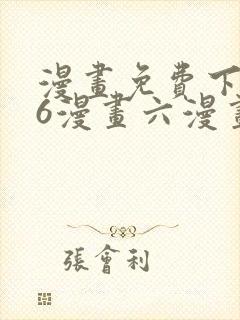 漫畫免費下
6漫畫六漫畫
張會利